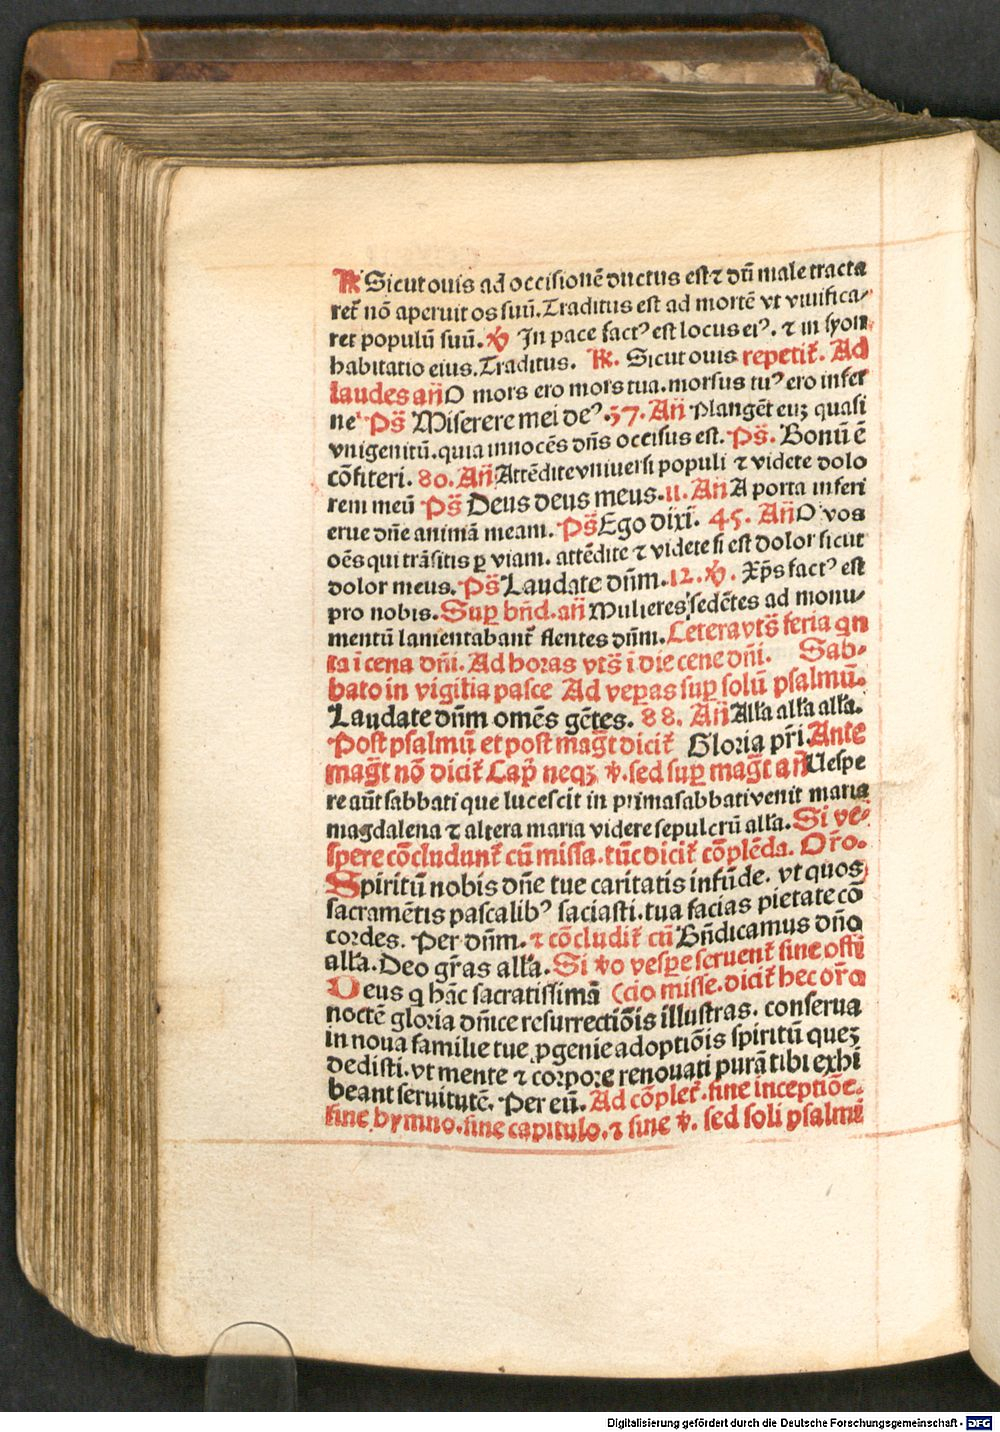 ℟ Sicut ouis ad occisionē ductus est ⁊ dū male tracta
ret̄ nō aperuit os suū. Traditus est ad mortē vt viuifica⸗
ret populū suū. ℣ In pace factꝰ est locus eiꝰ. ⁊ in syon
habitatio eius. Traditus. ℟. Sicut ouis repetit̄. Ad
laudes añ O mors ero mors tua. morsus tuꝰ ero infer
ne Ps̄ Miserere mei deꝰ. 57. Añ Plangēt euꝫ quasi
vnigenitū. quia innocēs dn̄s occisus est. Ps̄. Bonū ē
cōfiteri. 80. Añ Attēdite vniuersi populi ⁊ videte dolo
rem meū Ps̄ Deus deus meus. 11. Añ A porta inferi
erue dn̄e animā meam. Ps̄ Ego dixi. 45. Añ O vos
oēs qui trāsitis ꝑ viam. attēdite ⁊ videte si est dolor sicut
dolor meus. Ps̄ Laudate dn̄m. 12. ℣. Xp̄s factꝰ est
pro nobis. Suꝑ bn̄d. añ Mulieres sedētes ad monu⸗
mentū lamentabant̄ flentes dn̄m. Cetera vts̄ feria qn
ta ī cena dn̄i. Ad horas vts̄ ī die cene dn̄i. Sab⸗
bato in vigilia pasce Ad veꝑas suꝑ solū psalmū.
Laudate dn̄m omēs gētes. 88. Añ All'a all'a all'a.
Post psalmū et post maḡt dicit̄ Gloria pr̄i. Ante
maḡt nō dicit̄ Cap̄ neqꝫ ℣. sed suꝑ maḡt añ Uespe
re aūt sabbati que lucescit in prima sabbati venit maria
magdalena ⁊ altera maria videre sepulcrū all'a. Si ve⸗
spere cōcludunt̄ cū missa. tūc dicit̄ cōplēda. Or̄o.
Spiritū nobis dn̄e tue caritatis infūde. vt quos
sacramētis pascalibꝰ saciasti. tua facias pietate cō
cordes. Per dn̄m. ⁊ cōcludit̄ cū Bn̄dicamus dn̄o
all'a. Deo gr̄as all'a. Si v̊o vesꝑe seruent̄ sine offi
Deus q hāc sacratissimā (cio misse. dicit̄ hec or̄o
noctē gloria dn̄ice resurrectiōis illustras. conserua
in noua familie tue ꝓgenie adoptiōis spiritū queꝫ
dedisti. vt mente ⁊ corpore renouati purā tibi exhi
beant seruitutē. Per eū. Ad cōplet̄. sine inceptiōe.
sine hymno. sine capitulo. ⁊ sine ℣. sed soli psalmi
Digitalisierung gefördert durch die Deutsche Forschungsgemeinschaft - DFG